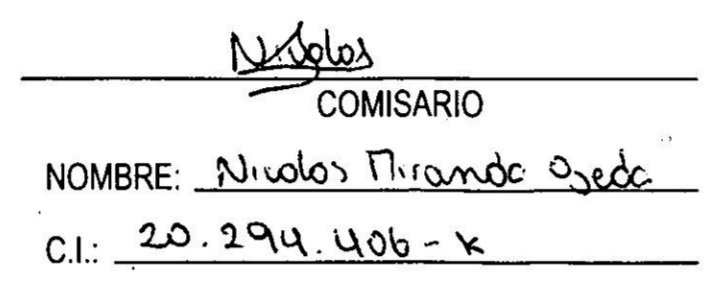 Nicolas
COMISARIO
NOMBRE: Nicolas Miranda Ojeda
C.I.: 20.294.406-K